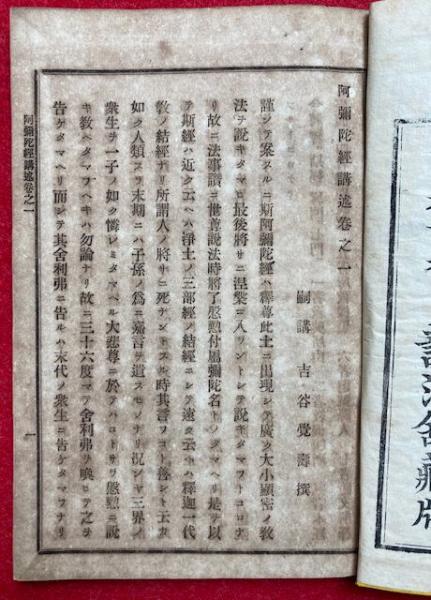 阿彌陀經講述卷之一
嗣講 吉谷覺壽 撰
謹ンテ案スルニ斯阿彌陀經ハ釋尊此土ニ出現シテ廣ク大小顯密ノ敎
法ヲ說キタマヒ最後將サニ涅槃ニ入ラントシテ說キタマフトコロナ
リ故ニ法事讃ニ世尊說法時將了慇懃付屬彌陀名トノタマヘリ是ヲ以
テ斯經ハ近ク云ヘハ淨土ノ三部經ノ結經ニシテ遠ク云ヘハ釋迦一代
敎ノ結經ナリ所謂人ノ將サニ死ナントスル時其言フコト善シト云カ
如ク人類スラ末期ニハ子孫ノ爲ニ嘉言ヲ遺スモノナリ況シヤ三界ノ
衆生ヲ一子ノ如ク憐レミタマヘル大悲尊ニ於テハコトサラ慇懃ニ說
キ敎ヘタマフヘキハ勿論ナリ故ニ三十六度マテ舍利弗ヲ喚ヒテ之ヲ
告ケタマヘリ而シテ其舍利弗ニ告ルハ末代ノ衆生ニ告ケタマフナリ
阿彌陀經講述卷之一
一
舍藏版